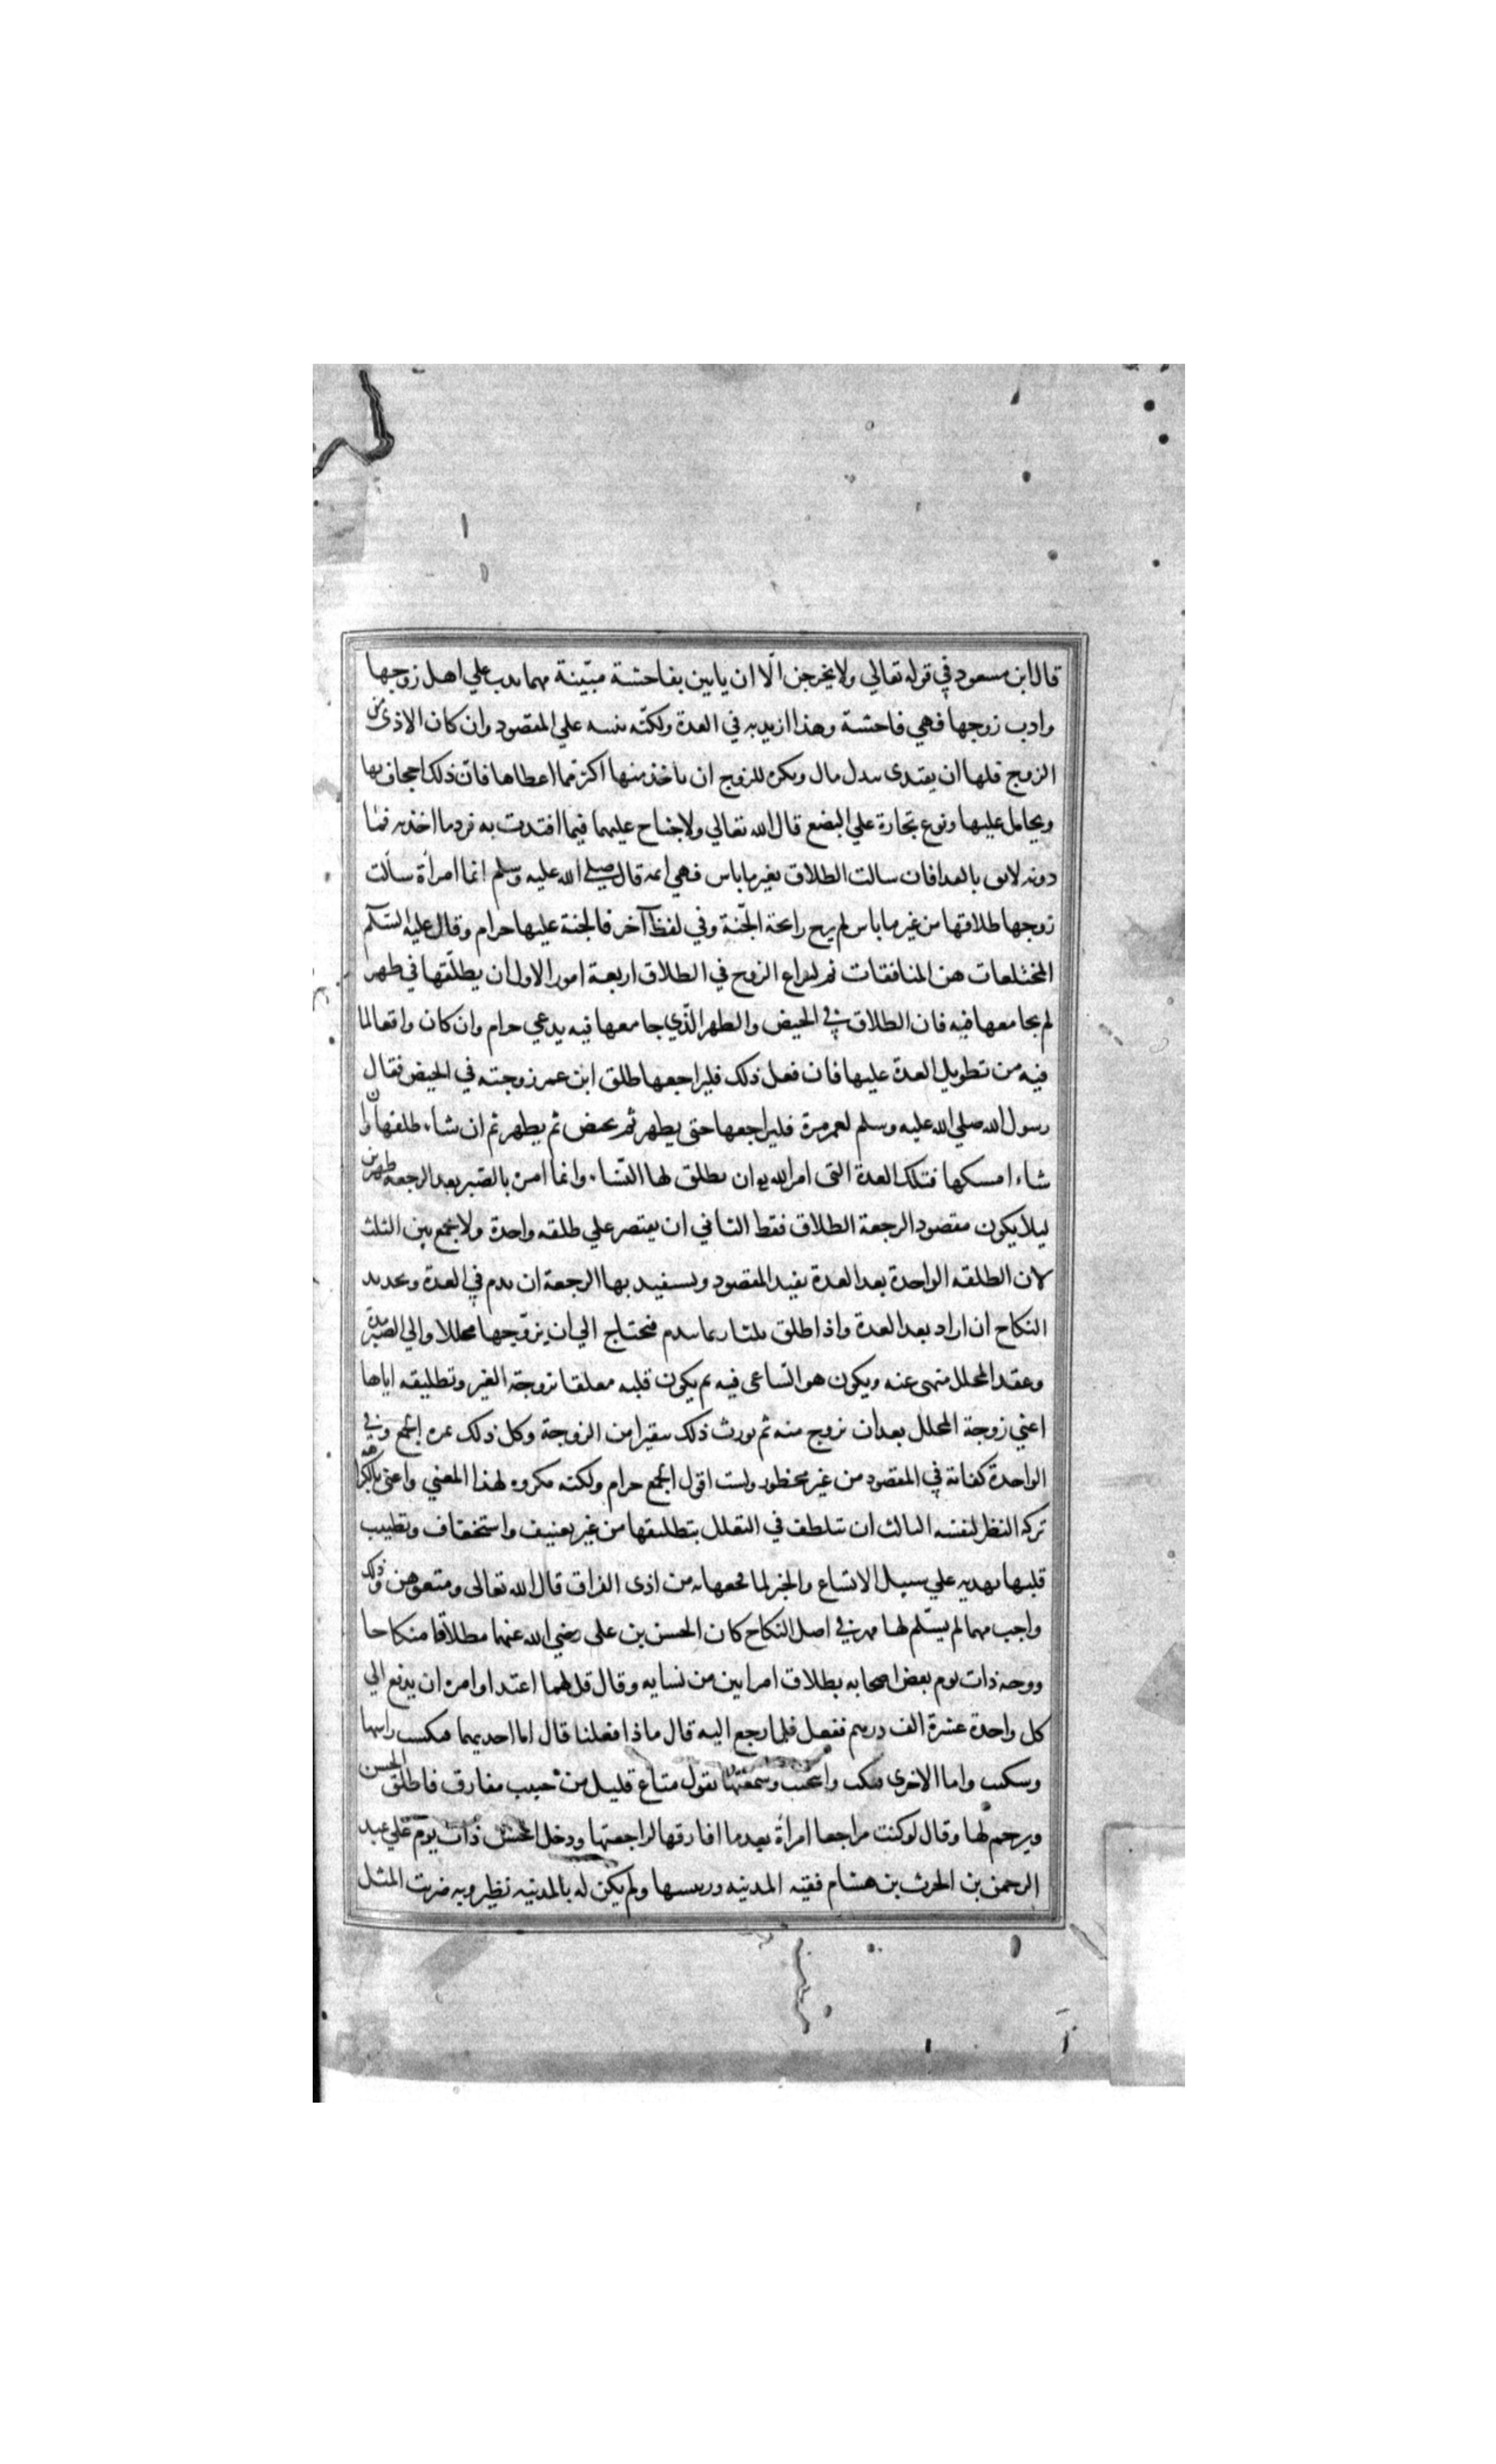 قال ابن مسعود في قوله تعالي ولا يخرجن الّا ان ياتين بفاحشة مبيّنة مهما بدت علي اهل زوجها
وادت زوجها فهي فاحشة وهذا اريد به في العدة ولكنّه تنبيه علي المقصود وان كان الاذى من
الزوج فلها ان يفتدى ببدل مال ويكره للزوج ان ياخذ منها اكثر مما اعطاها فانّ ذلك اجحاف بها
ويحامل عليها ونوع تجارة علي البضع قال الله تعالي ولا جناح عليهما فيما افتدت به فرد ما اخذته فما
دونه لايق بالفدا فان سالت الطلاق بغير ما باس فهي اثمه قال صلى الله عليه وسلم ايما امرأة سألت
زوجها طلاقها من غير ما باس لم يرح رائحة الجّنة وفي لفظ آخر فالجنة عليها حرام وقال عليه السّلم
المختلعات هن المنافقات ثم ليراع الزوج في الطلاق اربعة امور الاول ان يطلّقها في طهر
لم يجامعها فيه فان الطلاق في الحيض والطهر الّذي جامعها فيه بدعي حرام وان كان واقعا لما
فيه من تطويل العدة عليها فان فعل ذلك فليراجعها طلق ابن عمر زوجته في الحيض فقال
رسول الله صلي الله عليه وسلم لعمر مرة فليراجعها حتى يطهر ثم يحيض ثم يطهر ثم ان شاء طلقها وان
شاء امسكها فتلك العدة التى امر الله به ان يطلق لها النّساء وانما امره بالصّبر بعد الرجعه طهرين
ليلا يكون مقصود الرجعة الطلاق فقط الثاني ان يقتصر علي طلقه واحدة ولا يجمع بين الثلث
لان الطلقه الواحدة بعد العدة يفيد المقصود ويستفيد بها الرجعة ان ندم في العدة وتجديد
النكاح ان اراد بعد العدة واذا طلق ثلثا ربما ندم فيحتاج الي ان يزوّجها محللا والي الصّبر مدّة
وعقد المحلل منهى عنه ويكون هو السّاعى فيه ثم يكون قلبه معلقا بزوجة الغير وتطليقه اياها
اعني زوجة المحلل بعد ان تزوج منه ثم يورث ذلك تنفيرا من الزوجة وكل ذلك ثمره الجمع وفي
الواحدة كفاية في المقصود من غير محظور ولست اقول الجمع حرام ولكنه مكروه لهذا المعني واعنى بالكراهة
تركه النظر لنفسه الثالث ان يتلطف في التعلل بتطليقها من غير تعنيف واستخفاف وتطييب
قلبها بهديه علي سبيل الامتاع والجبر لما فجعها به من اذى الفراق قال الله تعالى ومتعوهن وذلك
واجب مهما لم يسّلم لها مهر في اصل النكاح كان الحسن بن على رضي الله عنهما مطلاقا منكاحا
ووجه ذات يوم بعض اصحابه بطلاق امراتين من نسايه وقال قل لهما اعتدا وامره ان يدفع الي
كل واحدة عشرة الف درهم ففعل فلما رجع اليه قال ماذا فعلتا قال اما احديهما فنكست راسها
وسكتت واما الاخرى فبكت وانتحبت وسمعتها تقول متاع قليل من حبيب مفارق فاطرق الحسن
وترحم لها وقال لو كنت مراجعا امراة بعد ما افارقها لراجعتها ودخل الحسن ذات يوم علي عبد
الرحمن بن الحرث بن هشام فقيه المدينه ورييسها ولم يكن له بالمدينه نظير وبه ضربت المثل